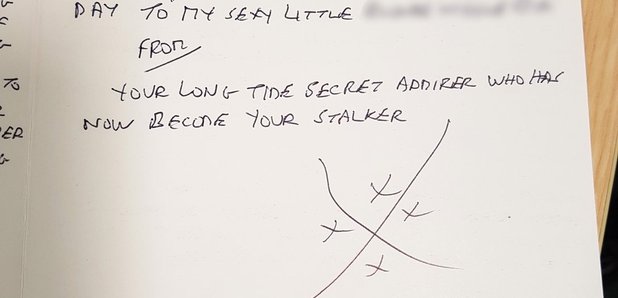 DAY TO MY SEXY LITTLE
FROM
YOUR LONG TIME SECRET ADMIRER WHO HAS
NOW BECOME YOUR STALKER
X
X
X
X
TO
ER